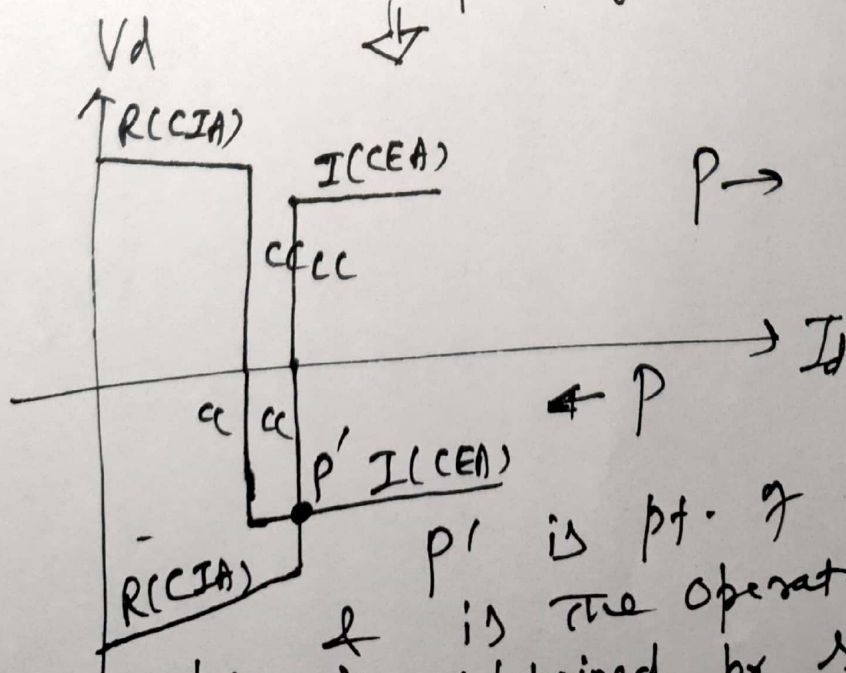 Vd
R(CIA)
I(CEA)
P→
CC CC
Id
CC CC
← P
P' I(CEA)
P' is pt. of
R(CIA)
& is The operat